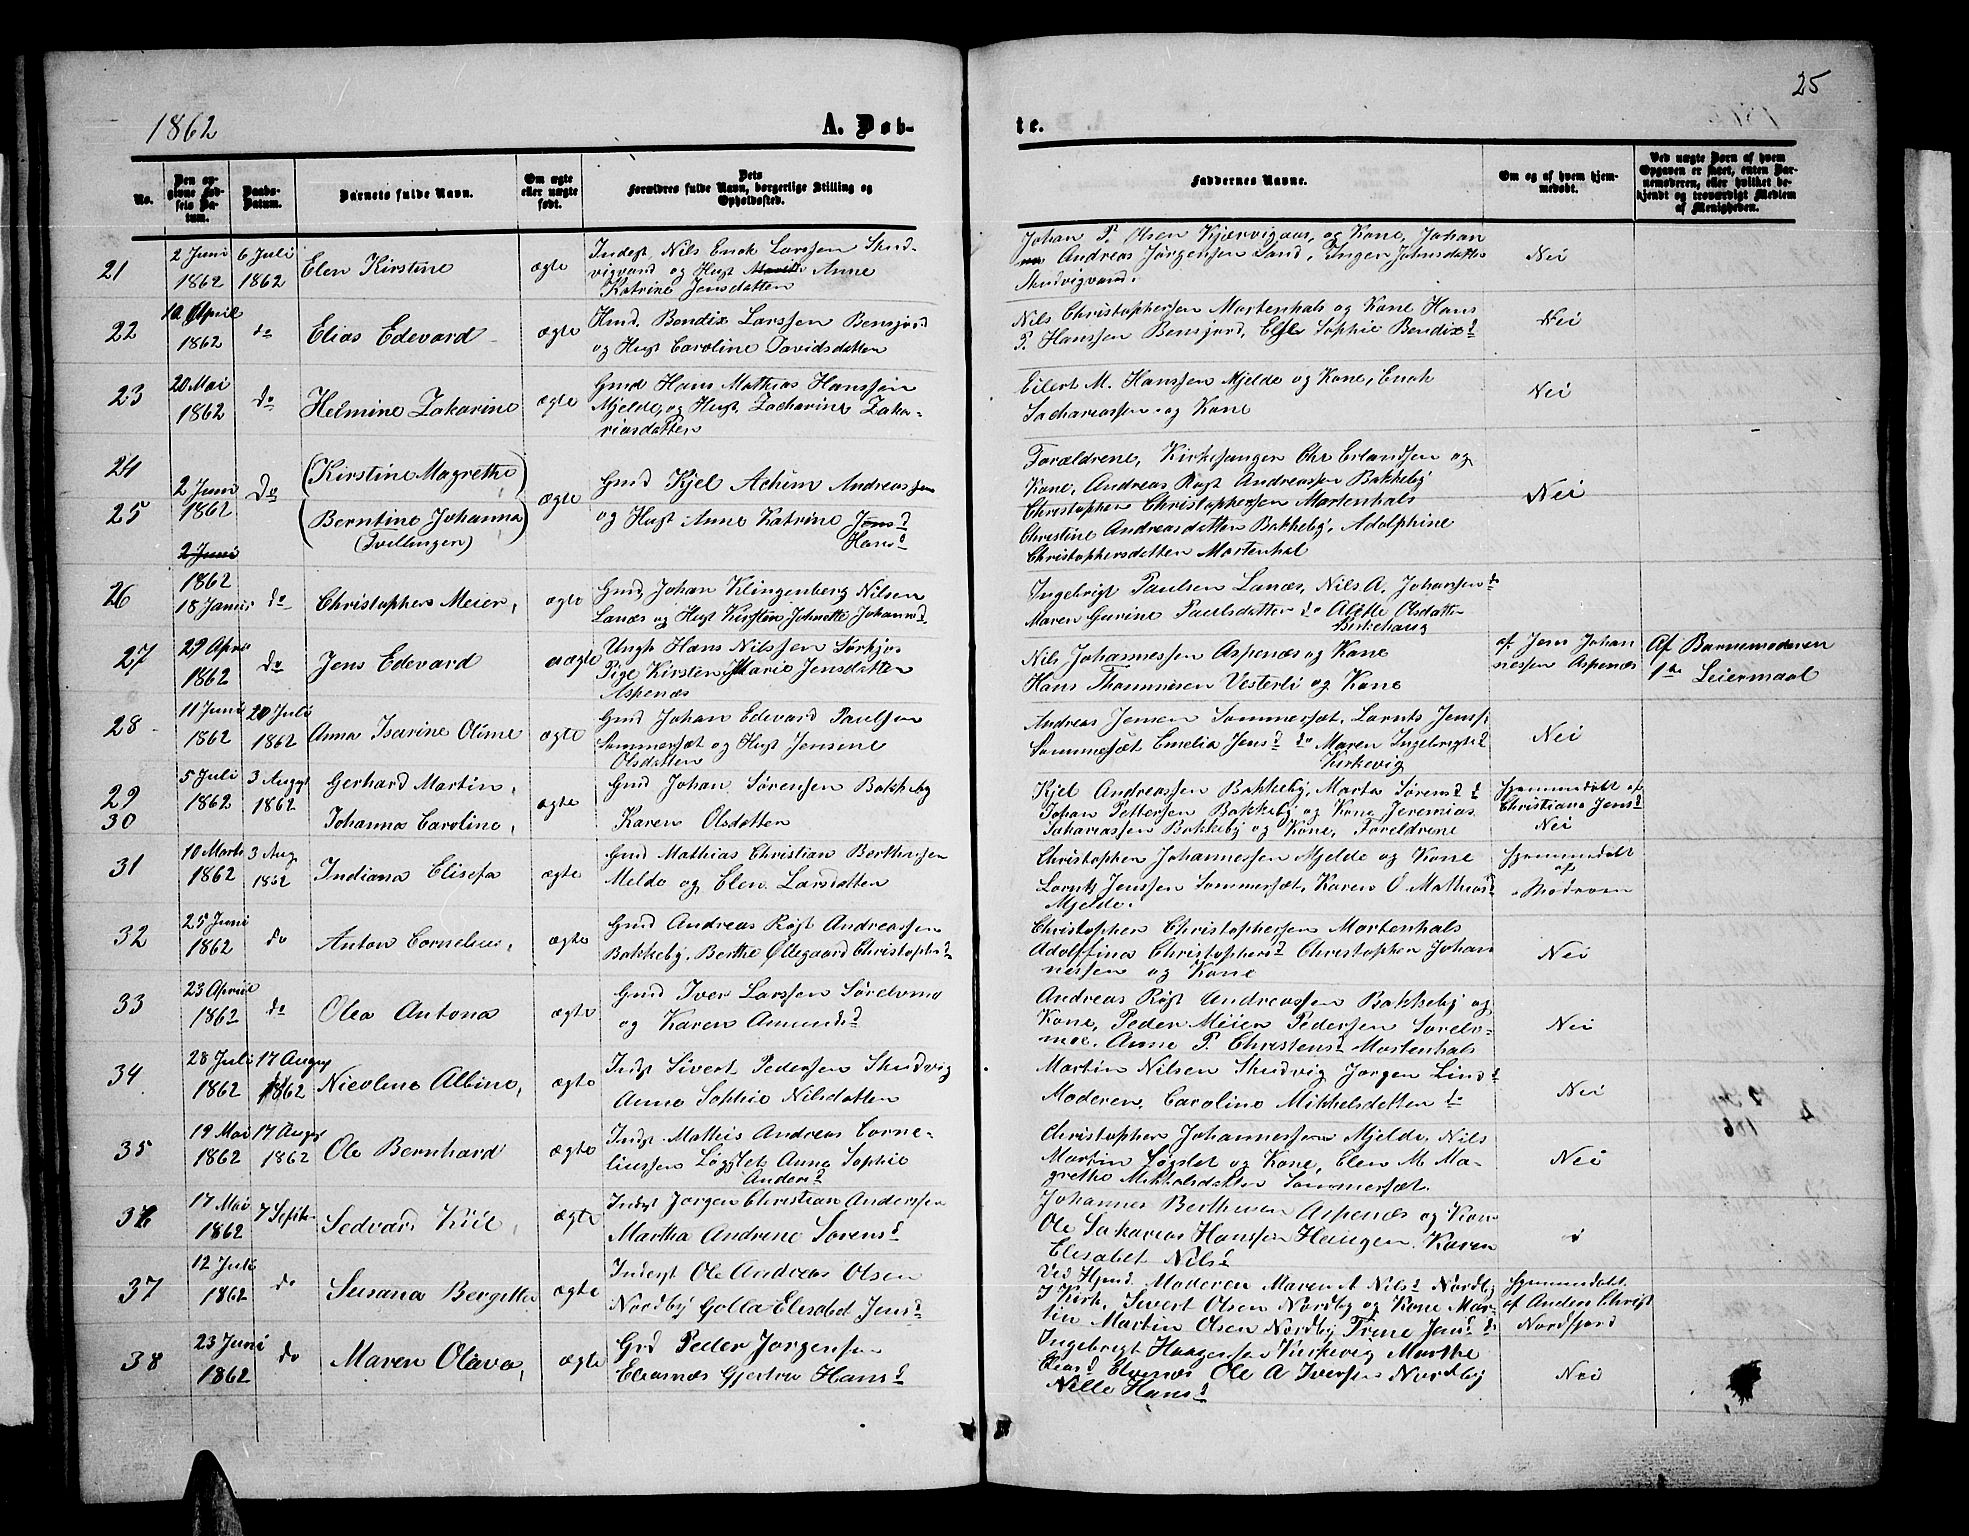 25
1862 A. Døb- te.
No.
Den opgivne Fødsels Datum.
Daabs-Datum.
Barnets fulde Navn.
Om ægte eller uægte født.
Dets Forældres fulde Navn, borgerlige Stilling og Opholdssted.
Faddernes Navne.
Om og af hvem hjemmedøbt.
Ved uægte Børn af hvem Opgaven er skeet, enten Barnemoderen, eller hvilket bekjendt og troværdigt Medlem af Menigheden.
21 2 Juni 1862 6 Juli 1862 Elen Kirstine ægte
Inderst Nils Enok Larssen Skud-
vigvand og Hust Anne
Katrine Jensdatten
Johan P. Olsen Kjærvigaas, og Kone, Johan
Andreas Jørgensen Sand, Inger Johnsdatter
Skudvigvand.
Nei
22 10 April 1862 do Elias Edevard ægte
Hmd. Bendix Larssen Bensjord
og Hust Caroline Davidsdatten
Nils Christophersen Mortenhals og Kone Hans
P. Hanssen Bensjord, Else Sophie Bendixd
Nei
23 20 Mai 1862 do Helmine Zakarine ægte
Gmd Hans Mathias Hanssen
Mjelde og Hust, Zacharine Zaka-
riasdatten
Eilert M. Hanssen Mjelde og Kone, Enok
Sachariassen og Kone
Nei
24 (Kirstine Magrethe)
25 2 Juni 1862 Do (Berntine Johanna) ægte
(Tvillinger)
Gmd Kjel Achim Andreassen
og Hust Anne Katrine Jensd
Hansd
Forældrene, Kirkesanger Chr Erlandsen og
Kone, Andreas Røgt Andreassen Bakkeby
Christopher Christophersen Mortenhals
Christine Andreasdatten Bakkeby, Adolphine
Christophersdatten Mortenhal
Nei
26 2 Juni 1862 18 Januar do Christopher Meier, ægte
Gmd, Johan Klingenberg Nilsen
Lanæs og Hust Kirsten Johnette Johannsd
Ingebrigt Paulsen Lanæs, Nils A. Johanssen do
Maren Gurine Paulsdatter do Olsdatter
Birkehaug
27 29 April 1862 do Jens Edevard uægte
Ungk Hans Nilssen Sørkjos
Pige Kirsten Marie Jensdatten
Aspenæs
Nils Johannessen Aspenæs og Kone
Hans Thommesen Vesterli og Kone
af Jens Johan
nessen Aspenæs
Af Barnemoderen
1ste Leiermaal
28 11 Juni 1862 20 Juli 1862 Anna Isarine Oline ægte
Gmd Johan Edevard Paulsen
Sommersæt og Hust Jensine
Olsdatten
Andreas Jensen Sommersæt, Lornts Jenss.
Sommersæt Emelia Jensd do Maren Ingebrigtsd
Kirkevig
Nei
29 5 Juli 1862 3 Augst 1862 Gerhard Martin,
30 Johanna Caroline, ægte
Gmd Johan Sørensen Bakkeby
Karen Olsdatten
Kjel Andreassen Bakkeby, Marta Sørensd do
Johan Pettersen Bakkeby og Kone Jeremias
Sachariassen Bakkeby og Kone, Foreldrene
Hjemmedøbt af
Christiane Jensd
Nei
31 10 Marts 1862 3 Aug 1862 Indiana Elisefa ægte
Gmd Mathias Christian Berthussen
Melde og Elen Larsdatten
Christopher Johannessen Mjelde og Kone
Lornts Jenssen Sommersæt, Karen O Mathiasd
Mjelde.
Hjemmedøbt
af
Moderen
32 25 Juni 1862 do Anton Cornelius, ægte
Gmd Andreas Røgt Andreassen
Bakkeby, Berthe Øllegaard Christophsd
Christopher Christophersen Mortenhals
Adolffina Christophersd Christopher Johan
nessen og Kone
Nei
33 23 April 1862 do Olea Antona ægte
Gmd Iver Larssen Sørelvmo
og Karen Amundsd
Andreas Røgt Andreassen Bakkeby og
Kone, Peder Meier Pedersen Sørelv-
moe. Anne P. Christensd Mortenhals
Nei
34 28 Juli 1862 17 Augst 1862 Nicoline Albine, ægte
Indst Sivert Pedersen Skudvig
Anne Sophie Nilsdatten
Martin Nilsen Skudvig Jørgen Lind do
Moderen, Caroline Mikkelsdatten do
Nei
35 19 Mai 1862 17 Augst 1862 Ole Bernhard ægte
Indst Mathis Andreas Corne-
liussen Løgslet Anne Sophie
Andersd
Christopher Johannessen Mjelde, Nils
Martin Løgslet og Kone, Elen M Ma-
grethe Mikkelsdatter Sommersæt.
Nei
36 17 Mai 1862 7 Septbr Sedvar Kiil, ægte
Indst Jørgen Christian Anderssen
Martha Andrine Sørensd
Johannes Berthusen Aspenæs og Kone
Ole Sakarias Hanssen Haugen, Karen
Elisabet Nilsd
37 12 Juli 1862 do Susana Bergitte ægte
Inderst Ole Andreas Olsen
Nordby Golla Elisabet Jensd
Ved Hjmd. Moderen Maren A Nilsd Nordby
I Kirk. Sivert Olsen Nordby og Kone Mar-
tin Martin Olsen Nordby Trene Jensd do
Hjemmedøbt
af Anders Christ
Nordfjord
38 23 Juni 1862 do Maren Olava, ægte
Grd Peder Jørgensen
Elvenæs Gjertru Hansd
Ingebrigt Haagensen Kirkevig Marthe
Eliasd Elvenæs Ole A Iversen Nordby
Nille Hansd
Nei